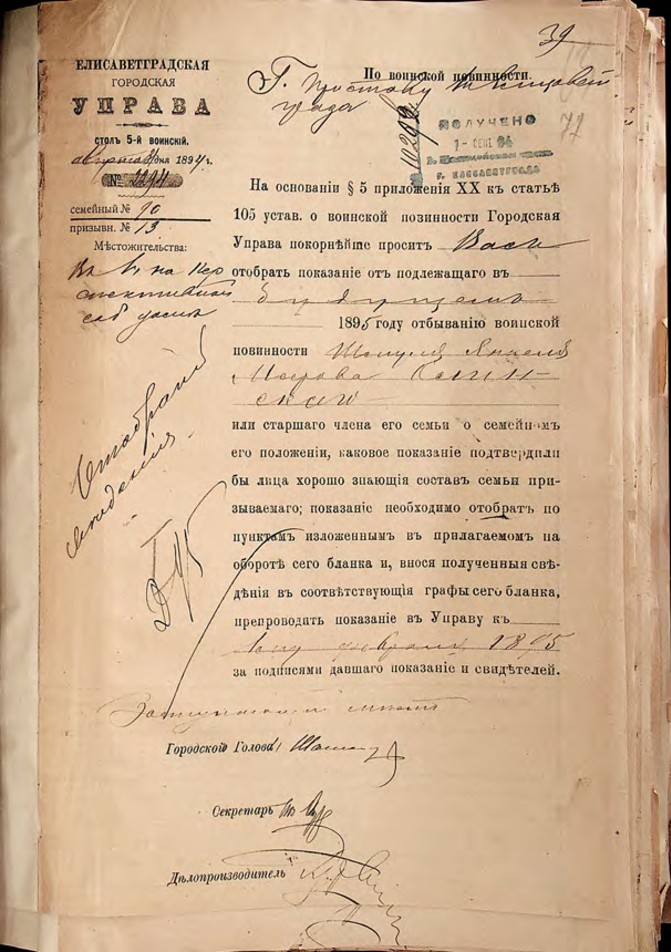 39
ЕЛИСАВЕТГРАДСКАЯ
ГОРОДСКАЯ
УПРАВА
столъ 5-й воинскій.
августа дня 1894 г.
№ 2294
семейный № 90
призывн. № 13
Мѣстожительства:
По воинской повинности.
Г. Приставу
града
10292
ПОЛУЧЕНО
1 - СЕНТ 94
г. ЕЛИСАВЕТГРАДА
72
На основаніи § 5 приложенія XX къ статьѣ
105 устав. о воинской повинности Городская
Управа покорнѣйше проситъ Васъ
отобрать показаніе отъ подлежащаго въ
будущемъ
1895 году отбыванію воинской
повинности Шмуля Янкеля
или старшаго члена его семьи о семейномъ
его положеніи, каковое показаніе подтвердили
бы лица хорошо знающія составъ семьи при-
зываемаго; показаніе необходимо отобрать по
пунктамъ изложеннымъ въ прилагаемомъ на
оборотѣ сего бланка и, внося полученныя свѣ-
дѣнія въ соотвѣтствующія графы сего бланка,
препроводить показаніе въ Управу къ
февраля 1895
за подписями давшаго показаніе и свидѣтелей.
Отобраны
свѣдѣнія
Городской Голова
Секретарь
Дѣлопроизводитель